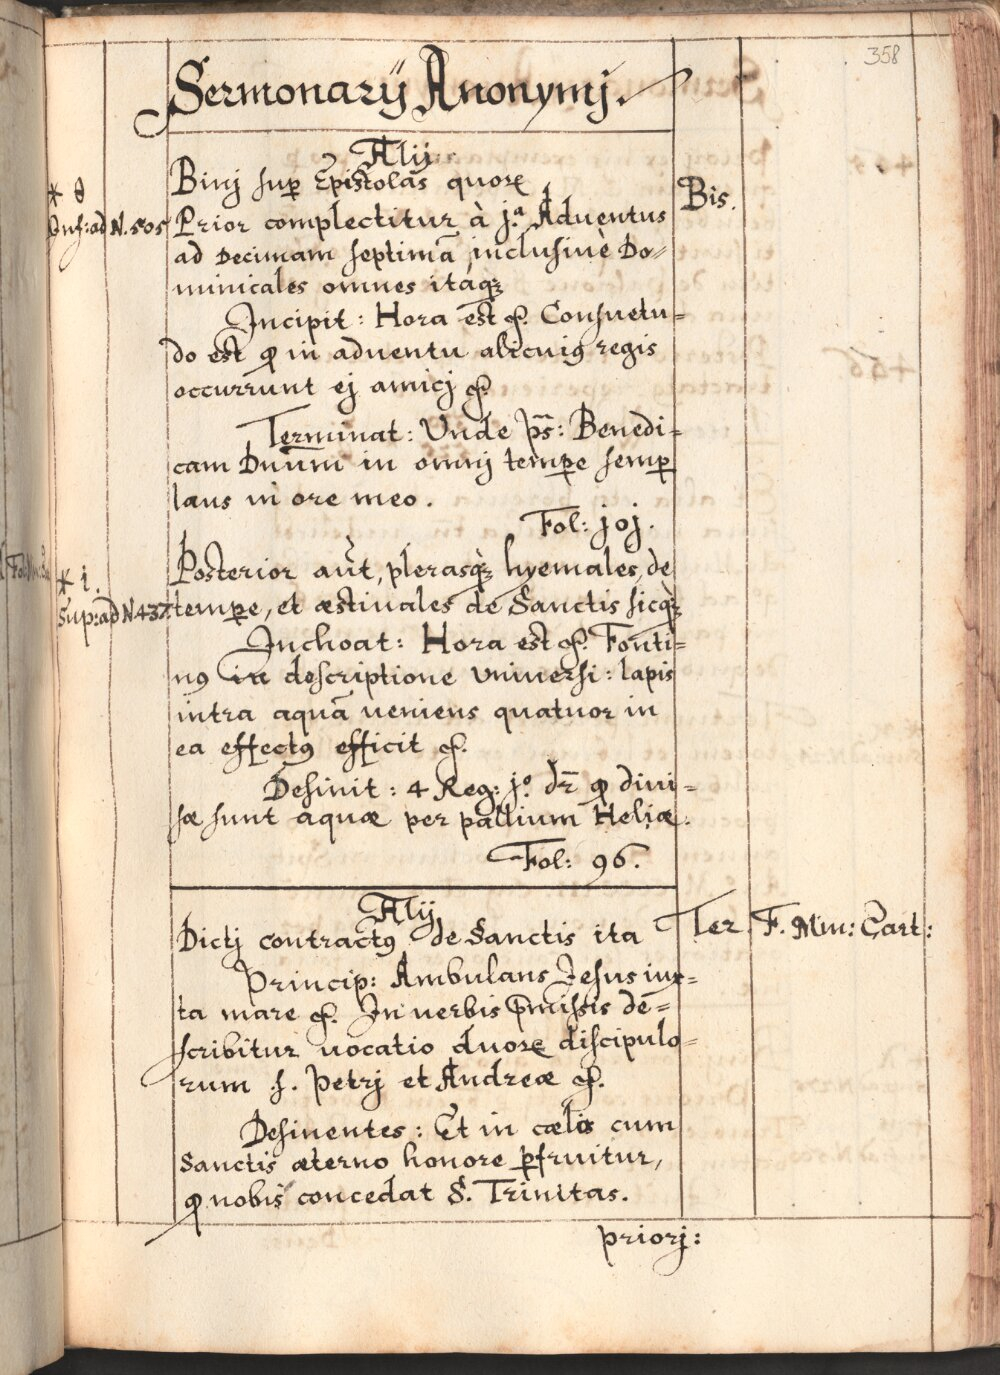 358
Sermonarij Anonymj.
Alij
Binj sup Epistolas quorx
* θ
Inf: ad N. 505
Prior complectitur à j.ª Adventus
Bis.
ad Decimam septimã inclusiuè Do=
minicales omnes itáq;
Incipit: Hora est &c. Consuetu=
do est qd in aduentu alicuiq regis
occurrunt ej amicj &c.
Terminat: Unde ps: Benedi=
cam Dnum in omnj tempe semp
laus in ore meo.
Fol: joj.
Posterior aut, plerasq; hyemales, de
* i.
Sup: ad N 437.
tempe, et æstiuales de Sanctis sicq;
Inchoat: Hora est &c. Fonti=
nq in descriptione vniuersi: lapis
intra aquã ueniens quatuor in
ea effectq efficit &c.
Desinit: 4 Reg: j.º dr qd diui=
sæ sunt aquæ per pallium Heliæ.
Fol: 96.
Alij
Dictj contractq de Sanctis ita
Ter. F. Min: Cart:
Princip: Ambulans Jesus iux=
ta mare &c. In uerbis pmissis de=
scribitur uocatio duorx discipulo=
rum s. Petrj et Andreæ &c.
Desinentes: Et in cælis cum
Sanctis æterno honore pfruitur,
qd nobis concedat S. Trinitas.
priorj: